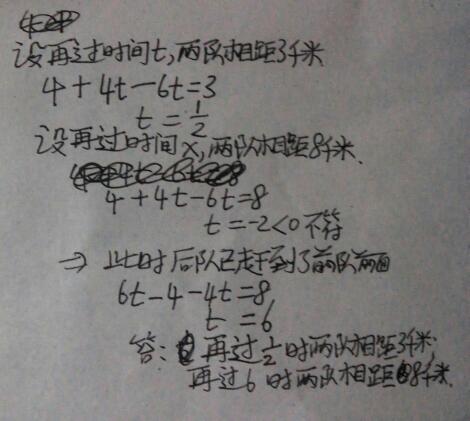 设再过时间t,两队相距3千米
4+4t-6t=3
t=1/2
设再过时间x,两队相距8千米.
4+4t-6t=8
t=-2<0 不符
⇒ 此时后队已走到了前队前面
6t-4-4t=8
t=6
答: 再过1/2时两队相距3千米;
再过6时两队相距8千米.